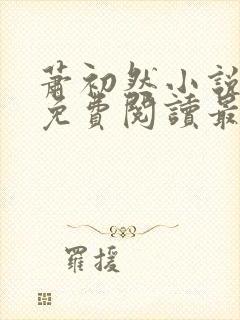 蕭初然小說
免費閱讀最
羅援